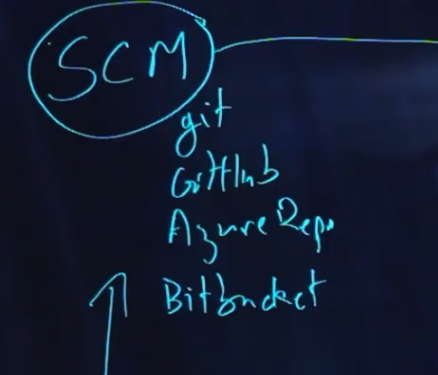 SCM
git
GitHub
Azure Repo
Bitbucket